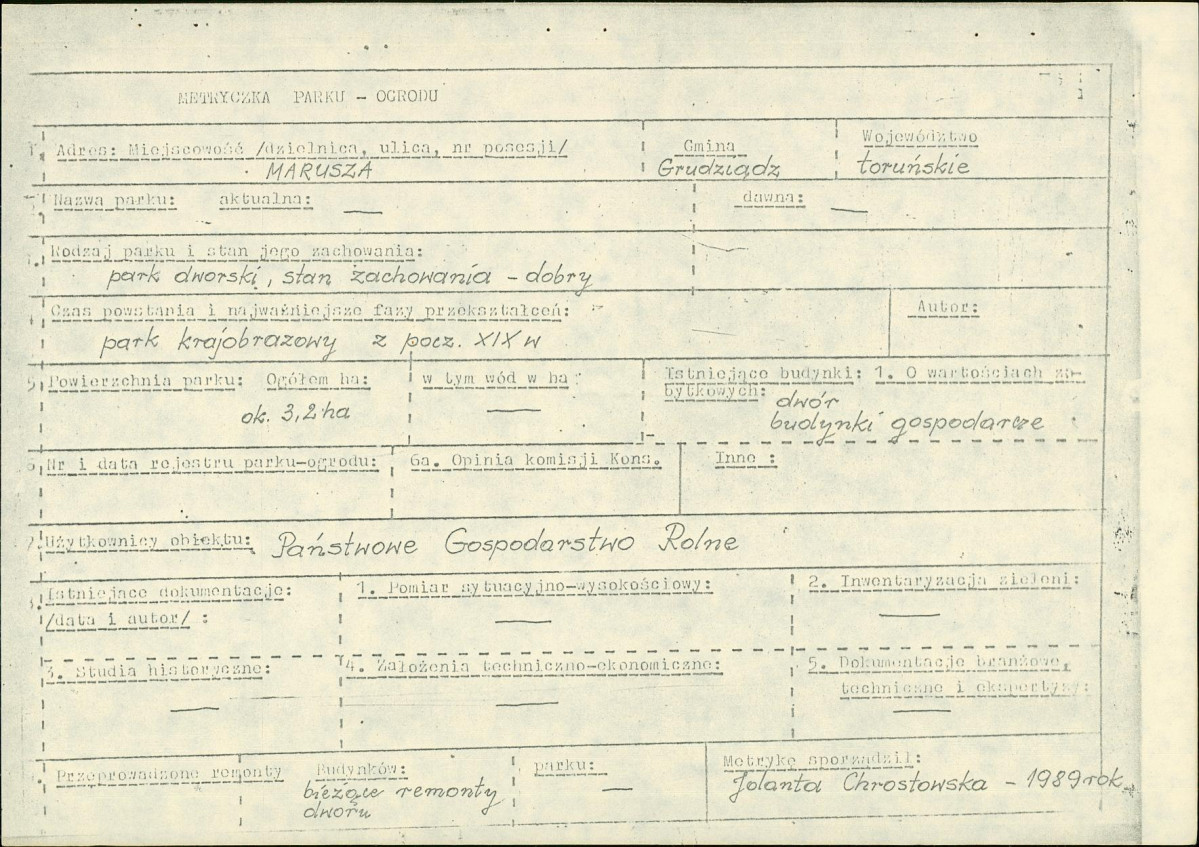 METRYCZKA PARKU - OGRODU
1
1. Adres: Miejscowość /dzielnica, ulica, nr posesji/ Gmina Województwo
MARUSZA Grudziądz toruńskie
Nazwa parku: aktualna: — dawna: —
Rodzaj parku i stan jego zachowania:
park dworski, stan zachowania - dobry
Czas powstania i najważniejsze fazy przekształceń: Autor:
park krajobrazowy z pocz. XIX w
5. Powierzchnia parku: Ogółem ha: w tym wód w ha Istniejące budynki: 1. O wartościach za-
bytkowych: dwór
ok. 3,2 ha — budynki gospodarcze
6. Nr i data rejestru parku-ogrodu: 6a. Opinia komisji Kons. Inne :
7. Użytkownicy obiektu: Państwowe Gospodarstwo Rolne
Istniejące dokumentacje: 1. Pomiar sytuacyjno-wysokościowy: 2. Inwentaryzacja zieleni:
/data i autor/ : — —
3. Studia historyczne: 4. Założenia techniczno-ekonomiczne: 5. Dokumentacje branżowe,
techniczne i ekspertyzy:
— — —
Przeprowadzone remonty Budynków: parku: Metrykę sporządził:
bieżące remonty — Jolanta Chrostowska - 1989 rok
dworu